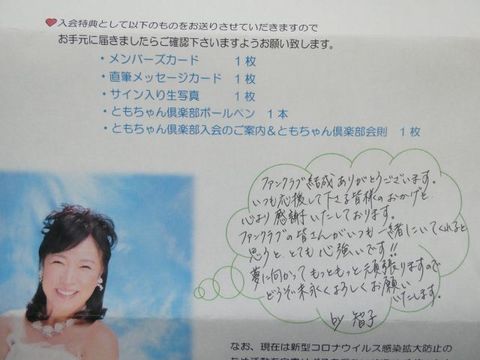 ❤入会特典として以下のものをお送りさせていだきますので
お手元に届きましたらご確認下さいますようお願い致します。
・メンバーズカード 1枚
・直筆メッセージカード 1枚
・サイン入り生写真 1枚
・ともちゃん倶楽部ボールペン 1本
・ともちゃん倶楽部入会のご案内&ともちゃん倶楽部会則 1枚
ファンクラブ結成ありがとうございます。
いつも応援して下さる皆様のおかげと
心より感謝いたしております。
ファンクラブの皆さんがいつも一緒にいてくれると
思うと、とても心強いです!!
夢に向かってもっともっと頑張りますので
どうぞ末永くよろしくお願い
いたします。
by 智子
なお、現在は新型コロナウイルス感染拡大防止の